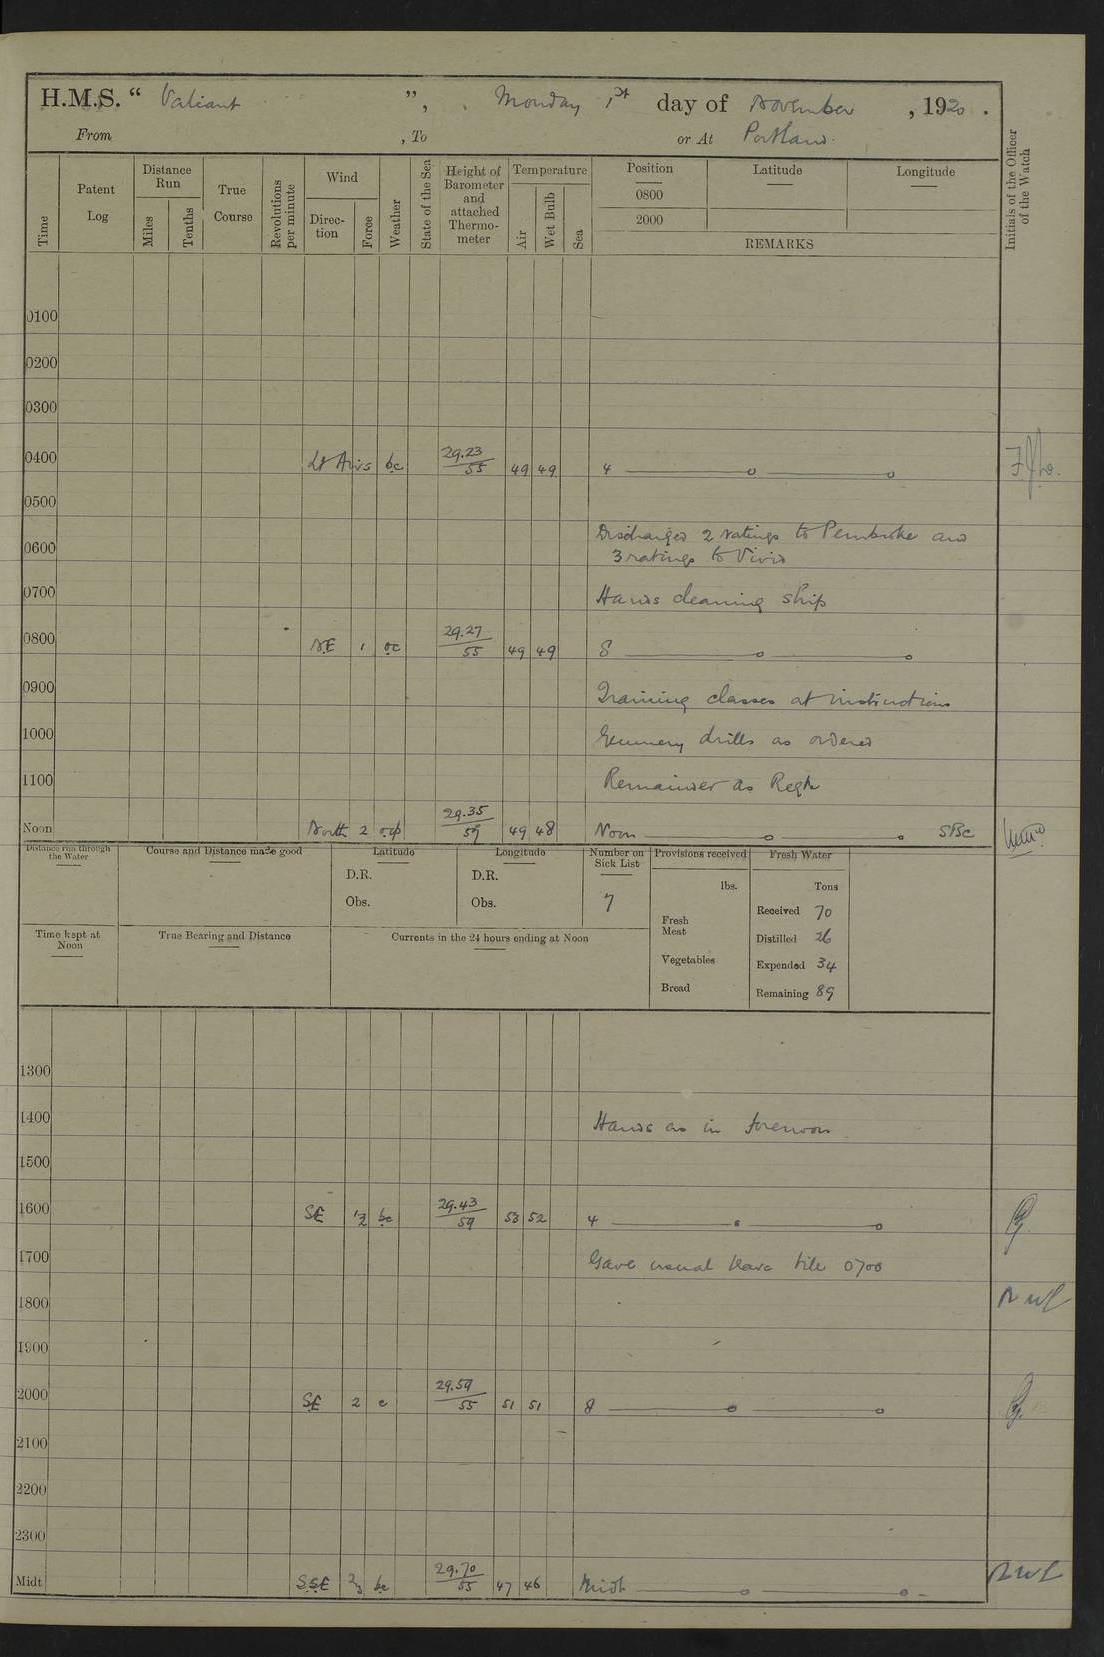 H.M.S. “ Valiant ”, Monday 1st day of November , 1920 .
From , To or At Portland.
Time
Patent Log
Distance Run
Miles
Tenths
True Course
Revolutions per minute
Wind
Direc-tion
Force
Weather
State of the Sea
Height of Barometer and attached Thermo-meter
Temperature
Air
Wet Bulb
Sea
Position Latitude Longitude
0800
2000
REMARKS
Initials of the Officer of the Watch
0100
0200
0300
0400 Lt Airs bc 29.23/55 49 49 4
0500
Discharged 2 ratings to Pembroke and
0600 3 ratings to Vivid
0700 Hands cleaning ship
0800 NE 1 oc 29.27/55 49 49 8
0900 Training classes at instructions
1000 Gunnery drills as ordered
1100 Remainder as Reqd
Noon North 2 29.35/59 49 48 Noon
Distance run through the Water
Course and Distance made good
Latitude
D.R.
Obs.
Longitude
D.R.
Obs.
Number on Sick List
7
Provisions received
lbs.
Fresh Meat
Vegetables
Bread
Fresh Water
Tons
Received 70
Distilled 26
Expended 34
Remaining 89
Time kept at Noon
True Bearing and Distance
Currents in the 24 hours ending at Noon
1300
1400 Hands as in forenoon
1500
1600 SE 1/2 bc 29.43/59 53 52 4
1700 Gave usual leave till 0700
1800
1900
2000 SE 2 c 29.59/55 51 51 8
2100
2200
2300
Midt SSE 2/3 bc 29.70/55 47 46 Midt